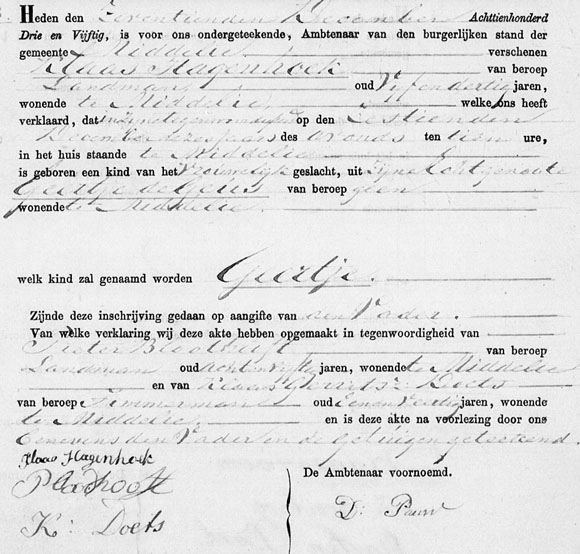 Heden den Zeventienden December Achttienhonderd
Drie en Vijftig, is voor ons ondergeteekende, Ambtenaar van den burgerlijken stand der
gemeente Middelie verschenen
Klaas Hagenhoek van beroep
Landman, oud Vijfendertig jaren,
wonende te Middelie welke ons heeft
verklaard, dat op den Zestienden
December dezes jaars des avonds ten tien ure,
in het huis staande te Middelie
is geboren een kind van het Vrouwelijk geslacht, uit zijne Echtgenoote
Geertje de Geus van beroep geen
wonende te Middelie.
welk kind zal genaamd worden Geertje.
Zijnde deze inschrijving gedaan op aangifte van den Vader.
Van welke verklaring wij deze akte hebben opgemaakt in tegenwoordigheid van
Pieter van beroep
Landman oud achtenvijftig jaren, wonende te Middelie
en van Klaas Doets
van beroep Timmerman oud Eenenveertig jaren, wonende
te Middelie en is deze akte na voorlezing door ons
benevens den Vader en de getuigen geteekend.
Klaas Hagenhoek
De Ambtenaar voornoemd.
K: Doets
D: Pauw